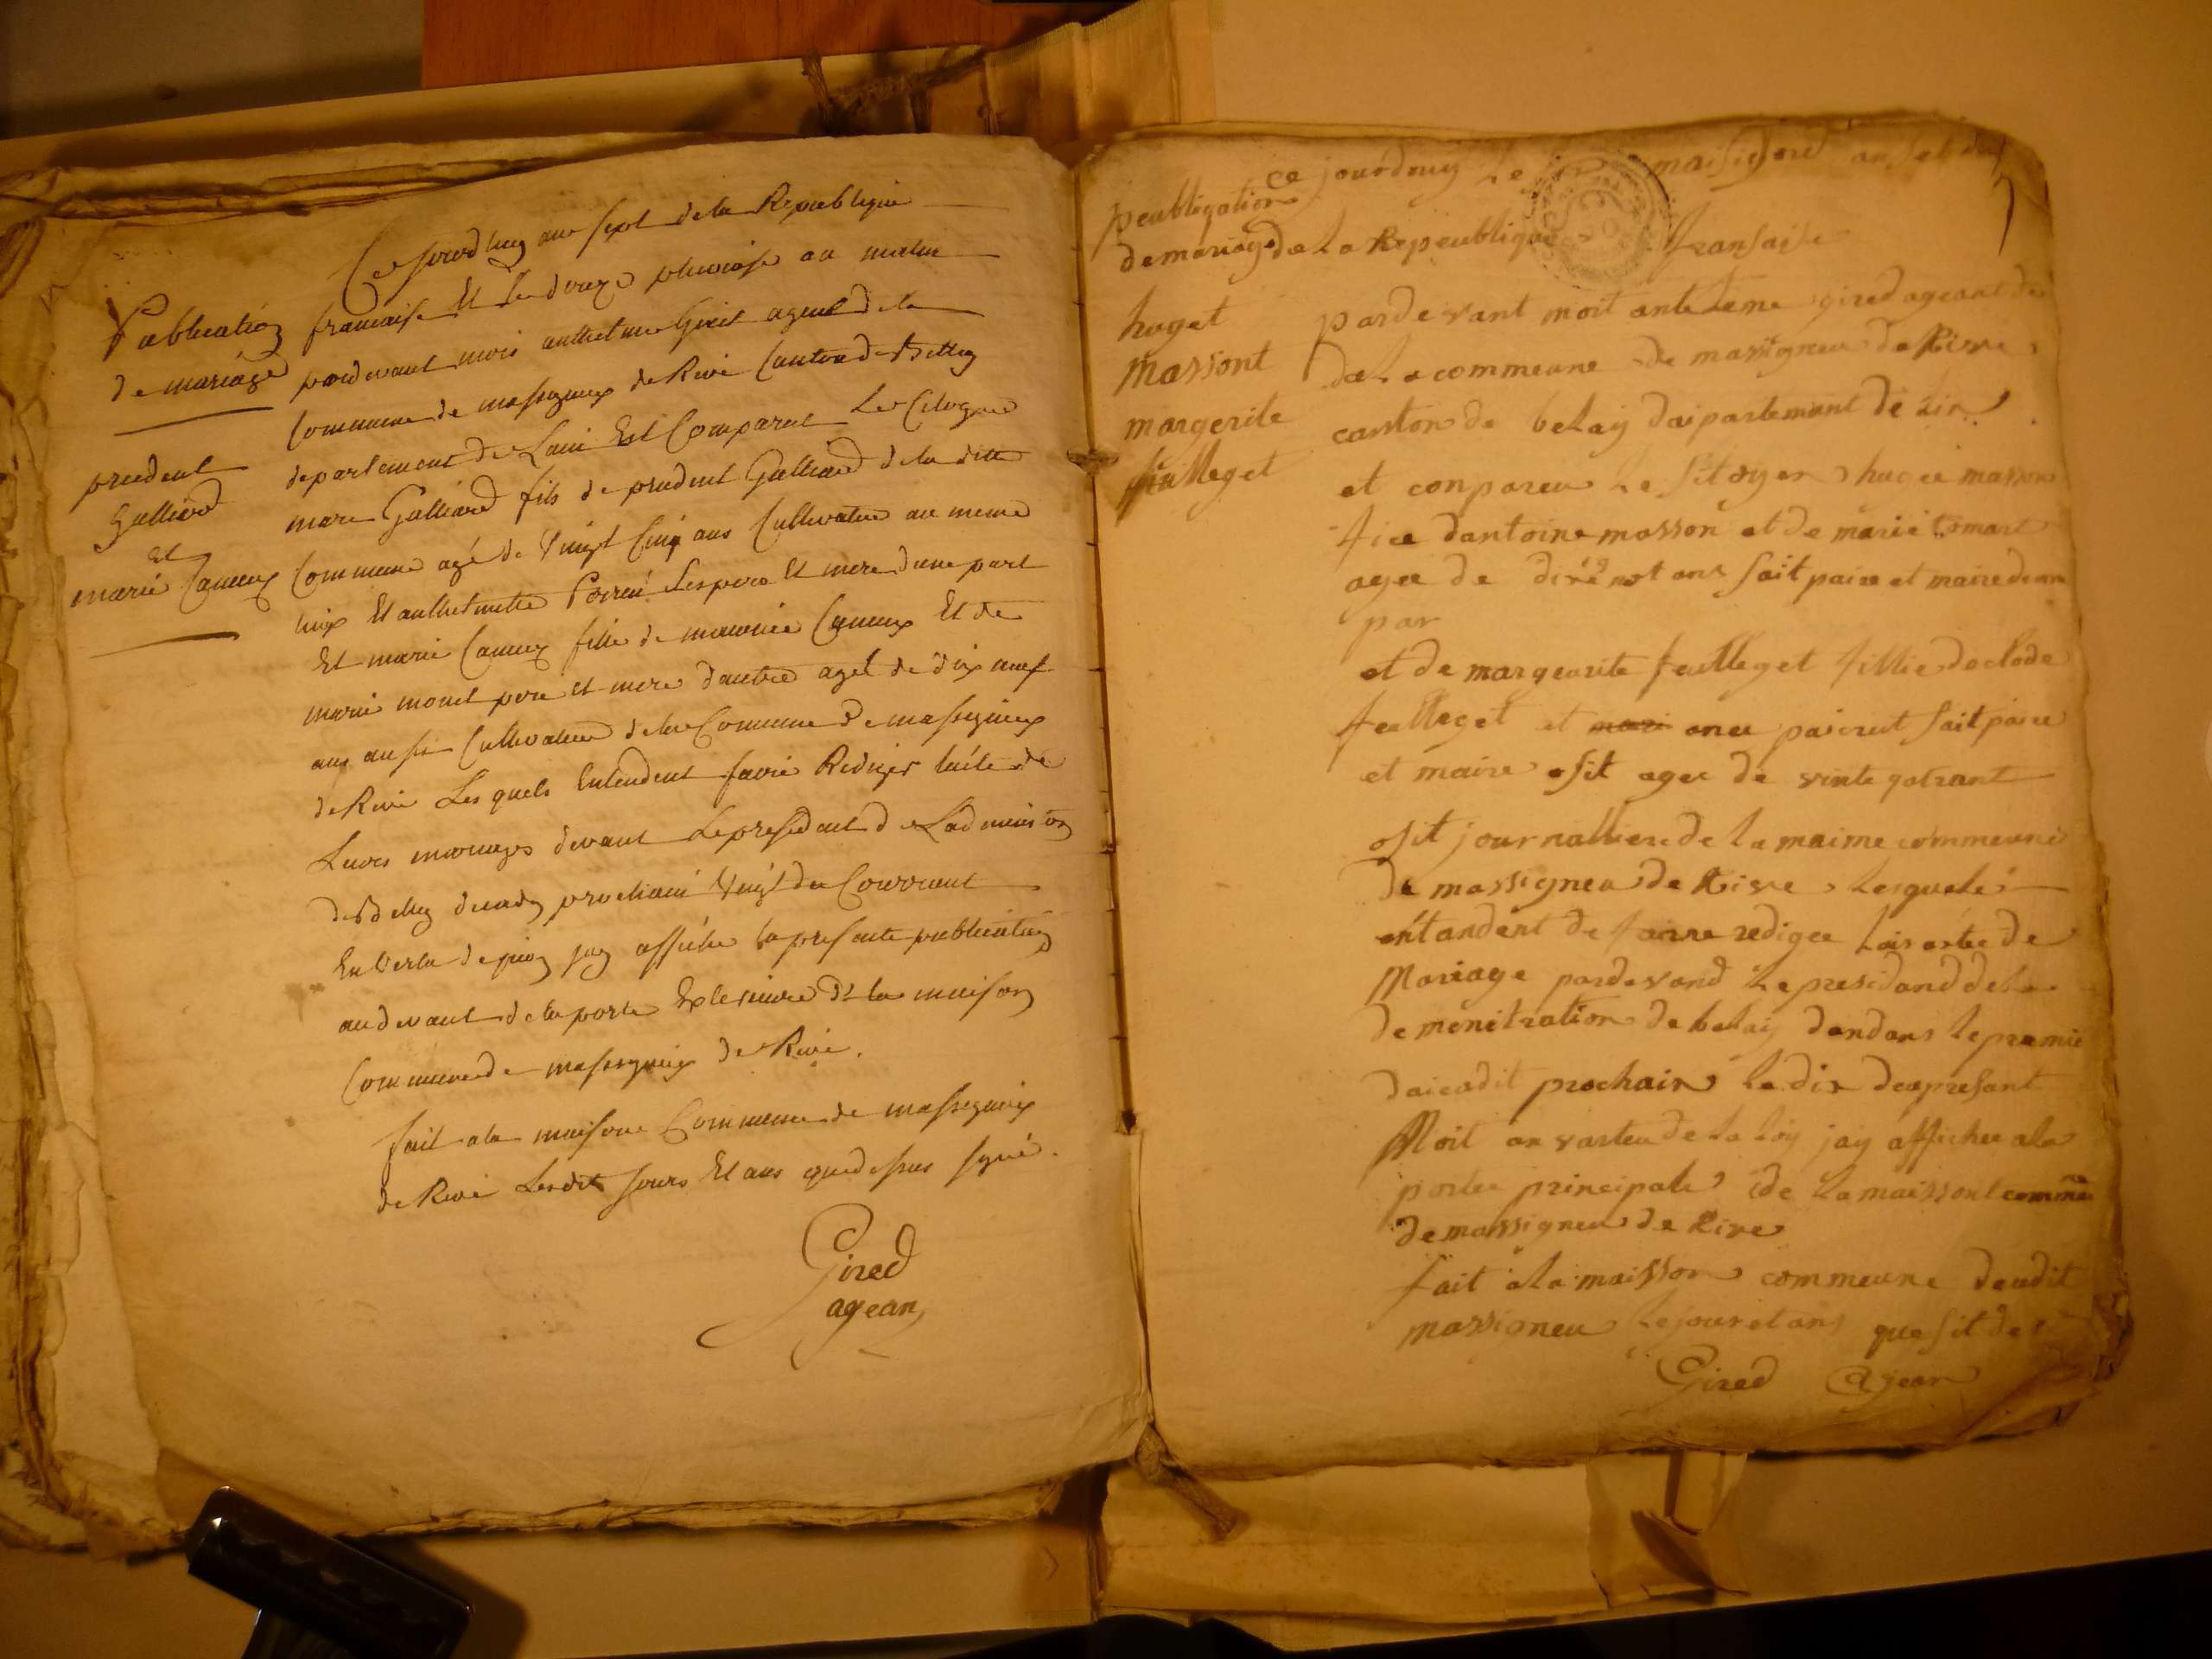 Publication
de mariage
prudent
Galliard
Et
marie Cameux
Ce Jourdhuy ans sept de la Republique
francaise Et le douze pluviose au matin
pardevant mois anthelme Girel agent de la
Commune de massigneux de Rive Canton de Belley
departement de Lain Est Comparut Le Citoyen
marc Galliard fils de prudent Galliard de la ditte
Commune agé de Vingt Cinq ans Cultivateur au meme
lieux Et anthelmette Ses pere Et mere dune part
Et marie Cameux fille de Cameux Et de
marie monet pere et mere dautre agée de dix neuf
ans aussi Cultivateur de la Commune de massigneux
de Rive Les quels Entendent faire Rediger lacte de
Leurs mariages devant Le president de Ladminis on
de Belley decady prochain Vingt du Courrant
En Vertu de quoy jay affiche la presente publication
au devant de la porte Exterieure de la maison
Commune de massigneux de Rive.
fait a la maison Commune de massigneux
de Rive Lesdit Jours Et ans que dessus signé.
Gired
agean
peubligation
de mariage
huget
Massont
margerite
feulleget
ce jourdhuy Le maisidord an set
de La Repeublique fransaise
par de vant moit anteleme gired ageant de
de La commeune de massigneu de Rive
canton de belay daipartemant de Lin
et conpareu Le sitoyen hugue masson
fice dantoine masson et de marie tomart
agee de ans sait paire et maire deune
par
et de margeurite feulleget fillie de clode
feulleget et anee pairrut sait paire
et maire osit agee de vinte qatrant
osit journalliere de la maime commeune
de massigneu de Rive Lesquele
entandent de fairre redigee Lais actee de
Mariage pardevand Le presidand de La
demenitration de belay dandans le premie
daicadit prochain Le dix deu presant
Moit an varteu de La loy jay affichee ala
portee principale de La maisson comme
de massigneu de Rive
fait a la maisson commeune deudit
massigneu Le jour et ans que sit des
Gired agean